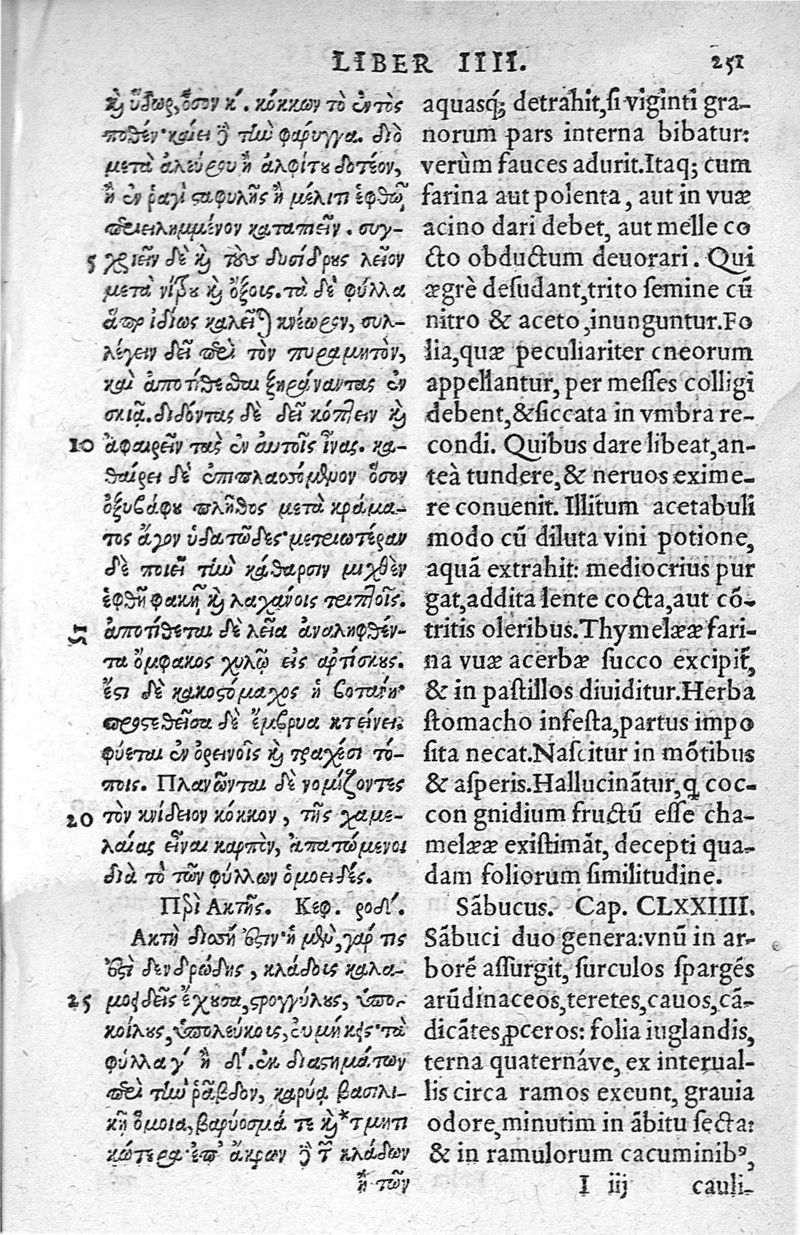 LIBER IIII. 251
ϗ ὕδωρ, ὅσον κ´. κόκκων τὸ ἐντὸς
ποθέν· καίει δὲ τὴν φάρυγγα. διὸ
μετὰ ἀλεύρου ἢ ἀλφίτου δοτέον,
ἢ ἐν ῥαγὶ σαφυλῆς ἢ μέλιτι ἑφθῷ
περιειλημμένον καταπιεῖν. συγ-
5 χρίειν δὲ ϗ τοὺς δυσίδρους λεῖον
μετὰ νίτρου ϗ ὄξοις. τὰ δὲ φύλλα
ἅπερ ἰδίως καλεῖται κνέωρον, συλ-
λέγειν δεῖ περὶ τὸν πυραμητὸν,
καὶ ἀποτίθεσθαι ξηράναντας ἐν
σκιᾷ. διδόντας δὲ δεῖ κόπτειν ϗ
10 ἀφαιρεῖν τὰς ἐν αὐτοῖς ἶνας. κα-
θαίρει δὲ ἐπιπλασσόμενον ὅσον
ὀξυβάφου πλῆθος μετὰ κράμα-
τος ἄγον ὑδατῶδες· μετριωτέραν
δὲ ποιεῖ τὴν κάθαρσιν μιχθὲν
ἑφθῇ φακῇ ϗ λαχάνοις τριπλοῖς.
15 ἀποτίθεται δὲ λεῖα ἀναληφθέν-
τα ὄμφακος χυλῷ εἰς ἀρτίσκους.
ἔστι δὲ κακοστόμαχος ἡ βοτάνη·
προστεθεῖσα δὲ ἔμβρυα κτείνει.
φύεται ἐν ὀρεινοῖς ϗ τραχέσι τό-
ποις. Πλανῶνται δὲ νομίζοντες
20 τὸν κνίδειον κόκκον, τῆς χαμε-
λαίας εἶναι καρπὸν, ἀπατώμενοι
διὰ τὸ τῶν φύλλων ὁμοειδές.
Περὶ Ακτῆς. Κεφ. ροδ´.
Ακτὴ δισσή ἐστιν· ἡ μὲν γάρ τις
ἐστὶ δενδρώδης, κλάδοις καλα-
25 μοειδεῖς ἔχουσα, στρογγύλους, ὑπο-
κοίλους, ὑπολεύκοις, εὐμήκεις· τὰ
φύλλα γ´ ἢ δ´. ἐκ διαστημάτων
περὶ τὴν ῥάβδον, καρύᾳ βασιλι-
κῇ ὅμοια, βαρύοσμά τε ϗ* τμητι
κώτερα· ἐπ' ἄκρων δὲ τ̃ κλάδων
ἢ τῶν
aquasq; detrahit, si viginti gra-
norum pars interna bibatur:
verùm fauces adurit. Itaq; cum
farina aut polenta, aut in vuæ
acino dari debet, aut melle co
cto obductum deuorari. Qui
ægrè desudant, trito semine cū
nitro & aceto, inunguntur. Fo
lia, quæ peculiariter cneorum
appellantur, per messes colligi
debent, & siccata in vmbra re-
condi. Quibus dare libeat, an-
teà tundere, & neruos exime-
re conuenit. Illitum acetabuli
modo cū diluta vini potione,
aquā extrahit: mediocrius pur
gat, addita lente cocta, aut cō-
tritis oleribus. Thymelææ fari-
na vuæ acerbæ succo excipit̃,
& in pastillos diuiditur. Herba
stomacho infesta, partus impo
sita necat. Nascitur in mōtibus
& asperis. Hallucinātur, q̨ coc-
con gnidium fructū esse cha-
melææ existimāt, decepti qua-
dam foliorum similitudine.
Sābucus. Cap. CLXXIIII.
Sābuci duo genera: vnū in ar-
borē assurgit, surculos spargēs
arūdinaceos, teretes, cauos, cā-
dicātes, ꝓceros: folia iuglandis,
terna quaternáve, ex interual-
lis circa ramos exeunt, grauia
odore, minutim in ābitu secta:
& in ramulorum cacuminibꝰ,
I iij cauli-